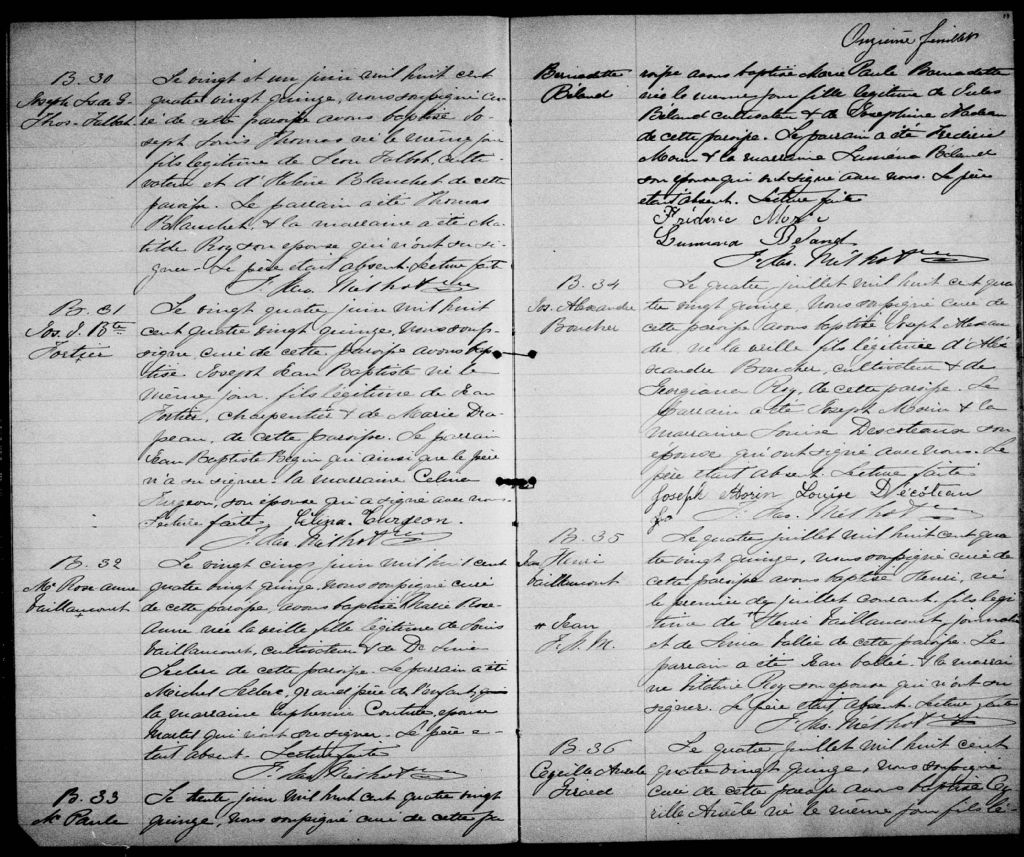 B. 30
Joseph Ls de G.
Thos. Talbot
Le vingt et un juin mil huit cent
quatre vingt quinze, nous soussigné cu-
ré de cette paroisse avons baptisé Jo-
seph Louis Thomas né le même jour
fils légitime de Léon Talbot, culti-
vateur et d'Helène Blanchet de cette
paroisse. Le parrain a été Thomas
Blanchet, & la marraine a été Ma-
tilde Roy son épouse qui n'ont su si-
gner. Le père était absent. Lecture faite
B. 31
Jos. J. Bte
Fortier
Le vingt quatre juin mil huit
cent quatre vingt quinze, nous sous-
signé curé de cette paroisse avons bap-
tisé Joseph Jean Baptiste né le
même jour, fils légitime de Jean
Fortier, charpentier & de Marie Dra-
peau, de cette paroisse. Le parrain
Jean Baptiste Begin qui ainsi que le père
n'a su signer. la marraine Celina
Turgeon, son épouse qui a signé avec nous.
Lecture faite. Celina Turgeon.
B. 32
Me Rose anna
Vaillancourt
Le vingt cinq juin mil huit cent
quatre vingt quinze nous soussigné curé
de cette paroisse, avons baptisé Marie Rose
Anna née la veille fille légitime de Louis
Vaillancourt, cultivateur & de
Leclerc de cette paroisse. Le parrain a été
Michel Leclerc, grand père de l'enfant,
la marraine Euphemie Couture, épouse
Martel qui n'ont su signer. Le père é-
tait absent. Lecture faite
B. 33
Me Paule
Le trente juin mil huit cent quatre vingt
quinze, nous soussigné curé de cette pa
Onzième feuillet
Bernadette
Béland
roisse avons baptisé Marie Paule Bernadette
née le même jour fille légitime de Jules
Béland cultivateur & de Josephine Nadeau
de cette paroisse. Le parrain a été Frédéric
Morin & la marraine Luména Béland
son épouse qui ont signé avec nous. Le père
était absent. Lecture faite
Fréderic Morin
Lumina Béland
B. 34
Jos. Alexandre
Boucher
Le quatre juillet mil huit cent qua
tre vingt quinze, nous soussigné curé de
cette paroisse avons baptisé Joseph Alexan
dre né la veille fils légitime d'Alé-
xandre Boucher, cultivateur & de
Georgiana Roy, de cette paroisse. Le
parrain a été Joseph Morin & la
marraine Louise Descoteaux son
épouse qui ont signé avec nous. Le
père était absent. Lecture faite
Joseph Morin Louise D'écôteau
B. 35
Jean Henri
Vaillancourt
# Jean
Le quatre juillet mil huit cent qua
tre vingt quinze, nous soussigné curé de
cette paroisse avons baptisé Henri, né
le premier de juillet courant, fils légi
time de # Henri Vaillancourt, journalier
et de Vallée de cette paroisse. Le
parrain a été Jean Vallée & la marrai
ne Roy son épouse qui n'ont su
signer. Le père était absent. Lecture faite
B. 36
Cyrille Aurèle
Girard
Le quatre juillet mil huit cent
quatre vingt quinze, nous soussigné
curé de cette paroisse avons baptisé Cy
rille Aurèle né le même jour fils lé-